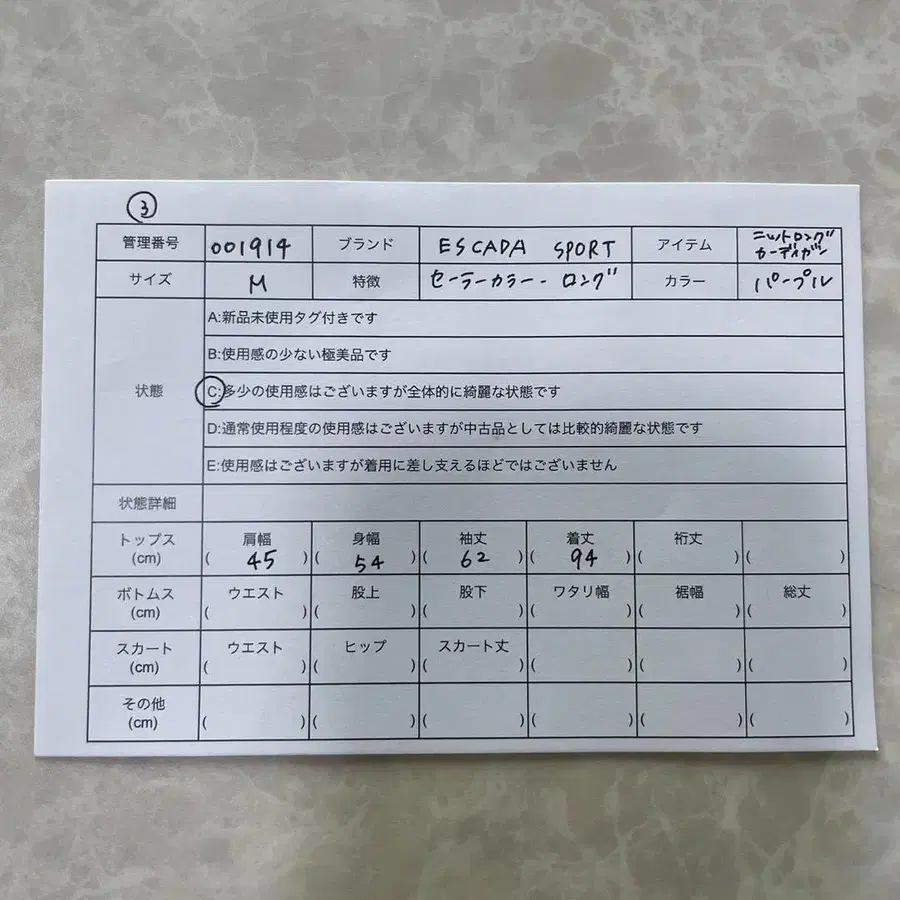 ③
管理番号 001914 ブランド ESCADA SPORT アイテム ニットロング
カーディガン
サイズ M 特徴 セーラーカラー・ロング カラー パープル
状態
A:新品未使用タグ付きです
B:使用感の少ない極美品です
C:多少の使用感はございますが全体的に綺麗な状態です
D:通常使用程度の使用感はございますが中古品としては比較的綺麗な状態です
E:使用感はございますが着用に差し支えるほどではございません
状態詳細
トップス 肩幅 身幅 袖丈 着丈 裄丈
(cm) ( 45 ) ( 54 ) ( 62 ) ( 94 ) ( ) ( )
ボトムス ウエスト 股上 股下 ワタリ幅 裾幅 総丈
(cm) ( ) ( ) ( ) ( ) ( ) ( )
スカート ウエスト ヒップ スカート丈
(cm) ( ) ( ) ( ) ( ) ( ) ( )
その他
(cm) ( ) ( ) ( ) ( ) ( ) ( )